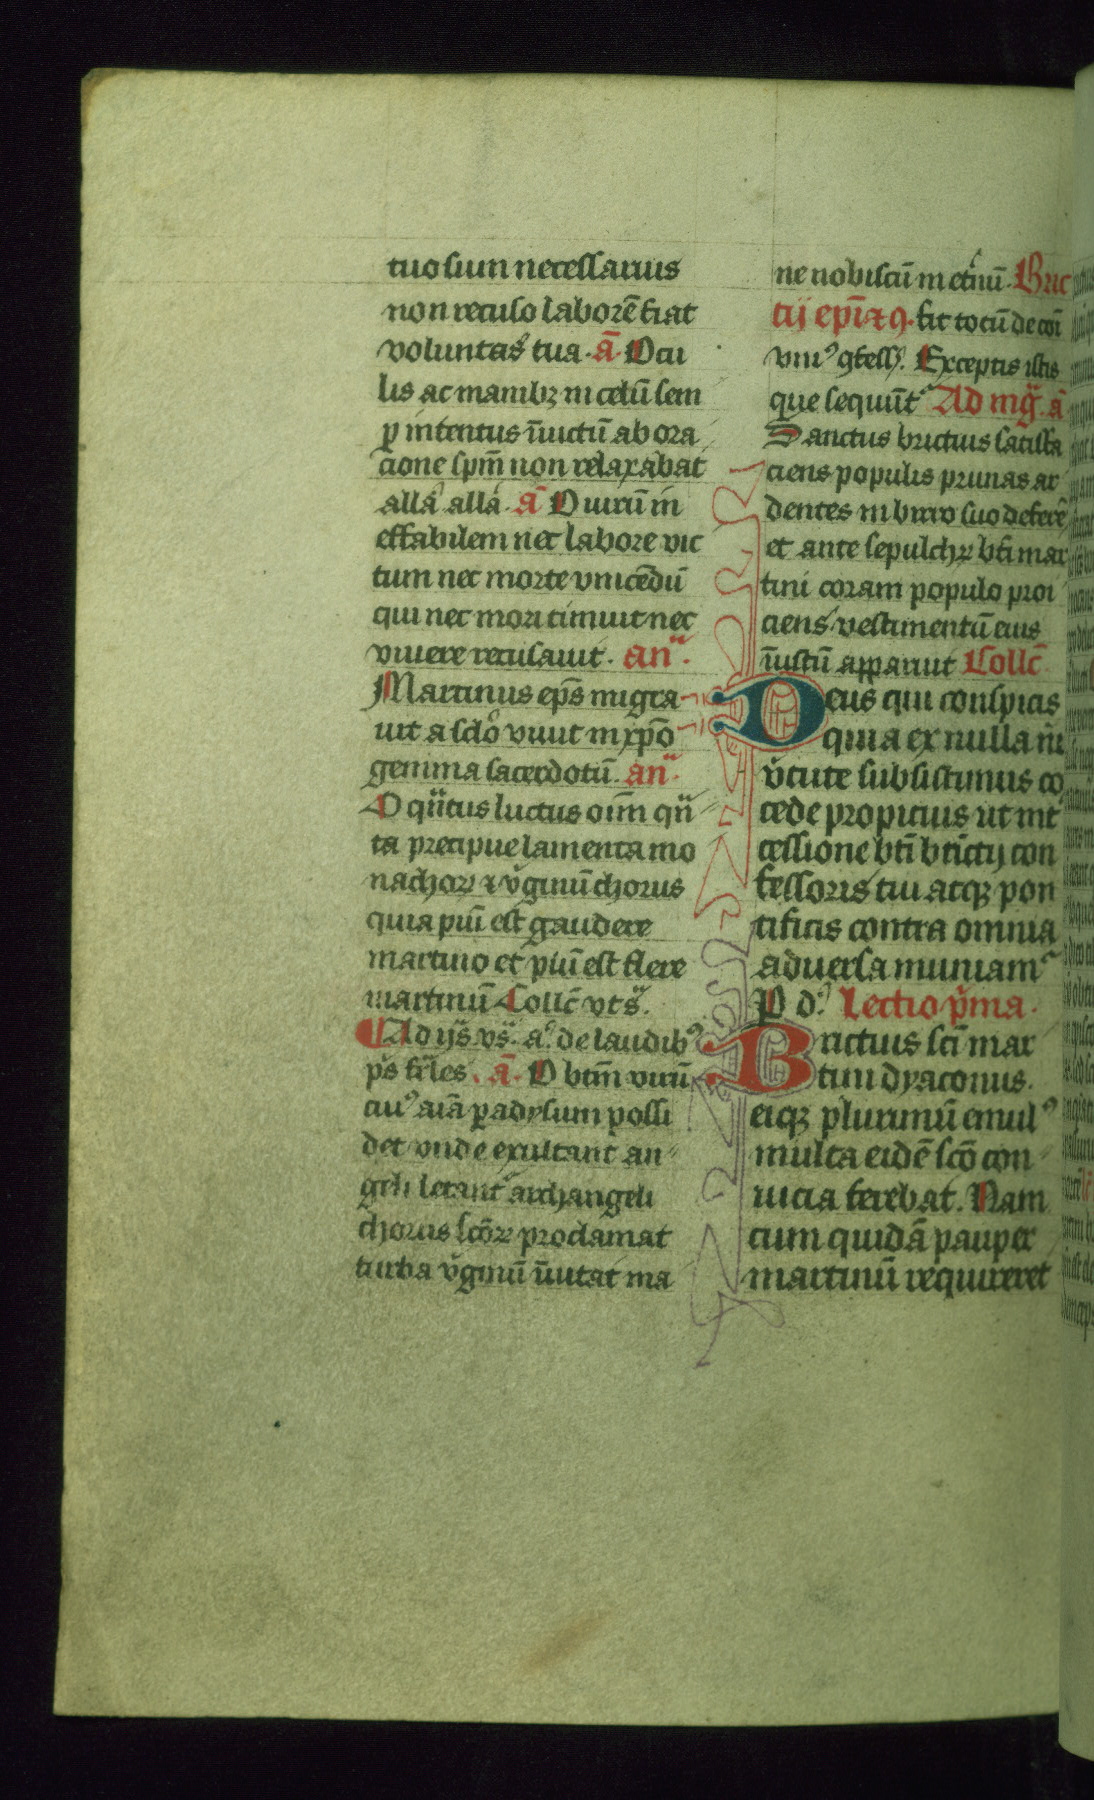 tuo sum necessarius
non recuso laborē fiat
voluntas tua. a̅ Ocu
lis ac manibꝫ in celū sem
ꝑ intentus īuictū ab ora
cione sp̅m non relaxabat
alla alla. a̅ O uirū in
effabilem nec labore vic
tum nec morte vincēdū
qui nec mori timuit nec
viuere recusauit. an̅.
Martinus ep̅s migra
uit a sc̅lo viuit in xp̅o
gemma sacerdotū. an̅.
O qͣntus luctus oīm qͣn
ta precipue lamenta mo
nachoꝝ ⁊ v̾ginū chorus
quia piū est gaudere
martino et piū est flere
martinū Collc̅ vt sͣ.
Ad ijs̅ vs̅ aͣ. de laudibꝰ
p̅s fr̅les. a̅. O btm̅ virū
cuiꝰ aīa ꝑadysum possi
det vnde exultant an
geli letant᷑ archangeli
chorus sc̅oꝝ proclamat
turba v̾ginū īuitat ma
ne nobiscū in et̾nū. Bric
cij ep̅i ⁊ ꝯ. fit totū de coī
vniꝰ ꝯfess̅. Exceptis istis
que sequūt᷑ Ad mg̅. a̅
Sanctus brictius satisfa
ciens populis prunas ar
dentes in birro suo defere̅
et ante sepulchꝝ bt̅i mar
tini coram populo proi
ciens vestimentū eius
īustū apparuit Collc̅
Deus qui conspicis
quia ex nulla nr̅a
v̾tute subsistimus co̅
cede propicius ut int̾
cessione bt̅i bricti̅j con
fessoris tui atqꝫ pon
tificis contra omnia
aduersa muniam᷑
P dꝰ. Lectio pͥma.
Brictius sc̅i mar
tini dyaconus.
eiqꝫ plurimū emulꝰ
multa eidē sc̅o con
uicia ferebat. Nam
cum quidā pauper
martinū requireret